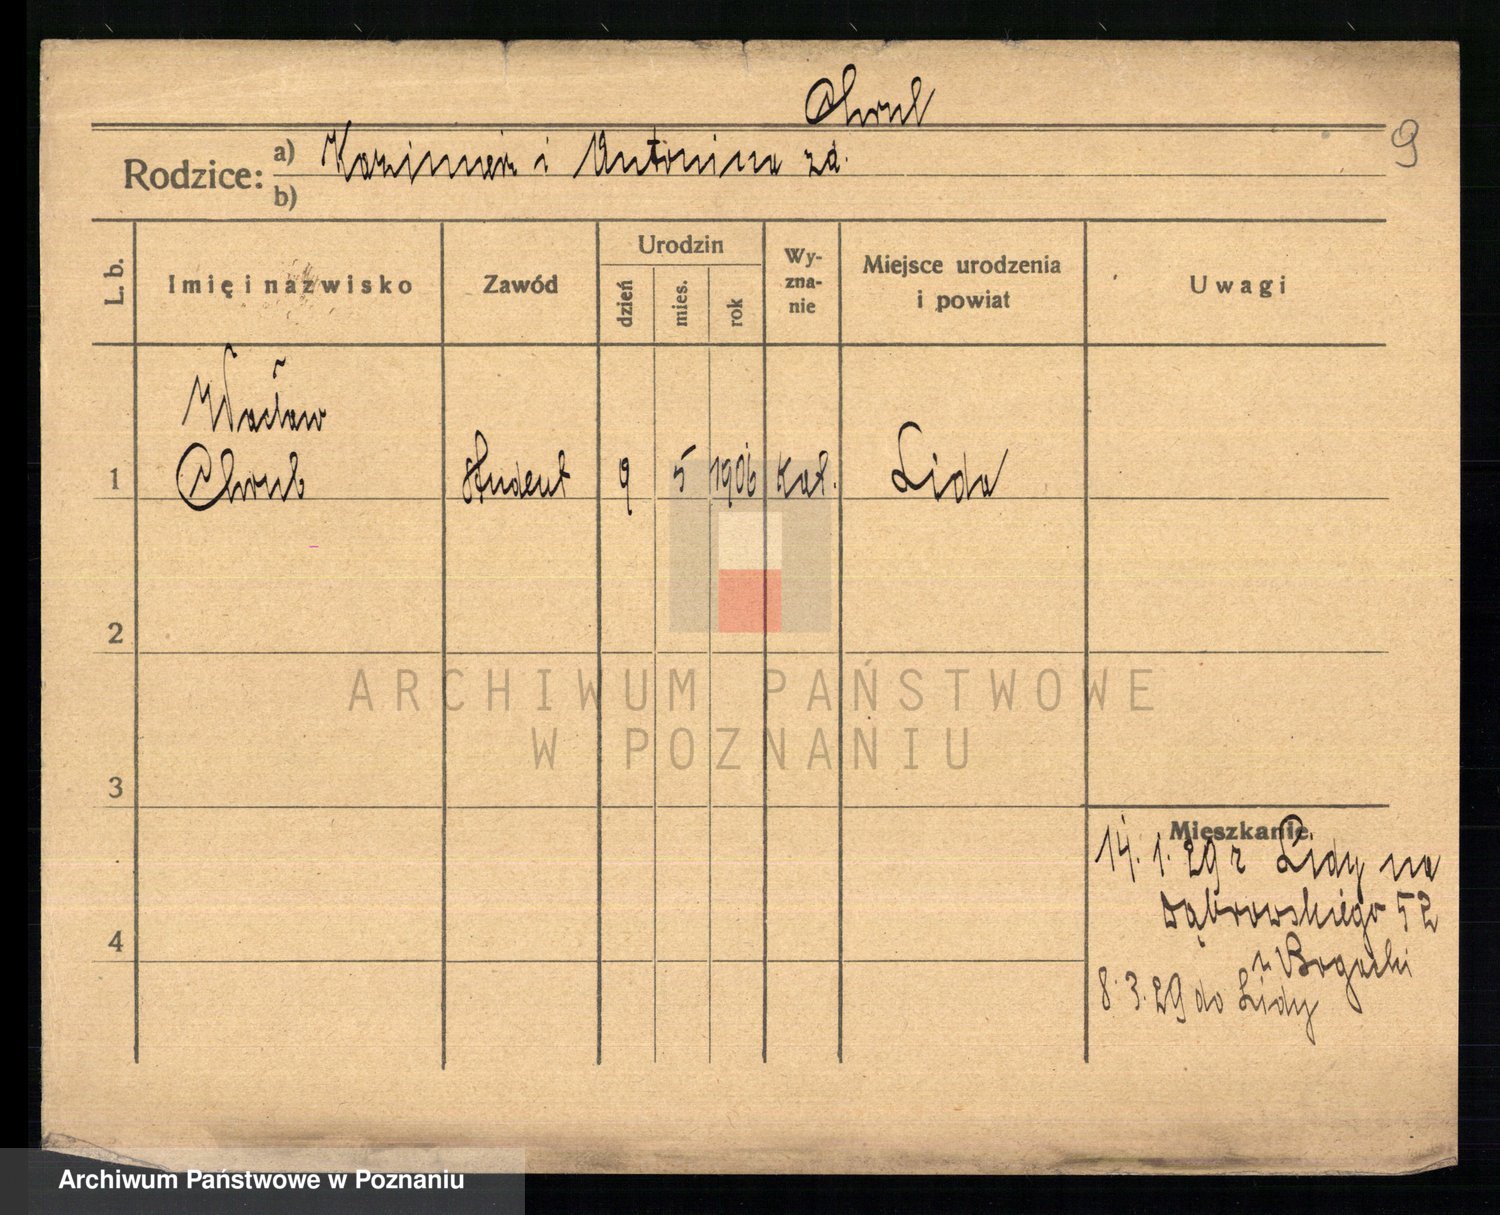 Chrul
9
Rodzice: a) Kazimierz i Antonina zd.
b)
L. b.
Imię i nazwisko
Zawód
Urodzin
dzień
mies.
rok
Wy-
zna-
nie
Miejsce urodzenia
i powiat
Uwagi
Wacław
1 Chrub student 9 5 1906 kat. Lida
2
3
4
Mieszkanie
14. 1. 29 z Lidy na
Dąbrowskiego 52
Bogacki
8. 3. 29 do Lidy
ARCHIWUM PAŃSTWOWE
W POZNANIU
Archiwum Państwowe w Poznaniu